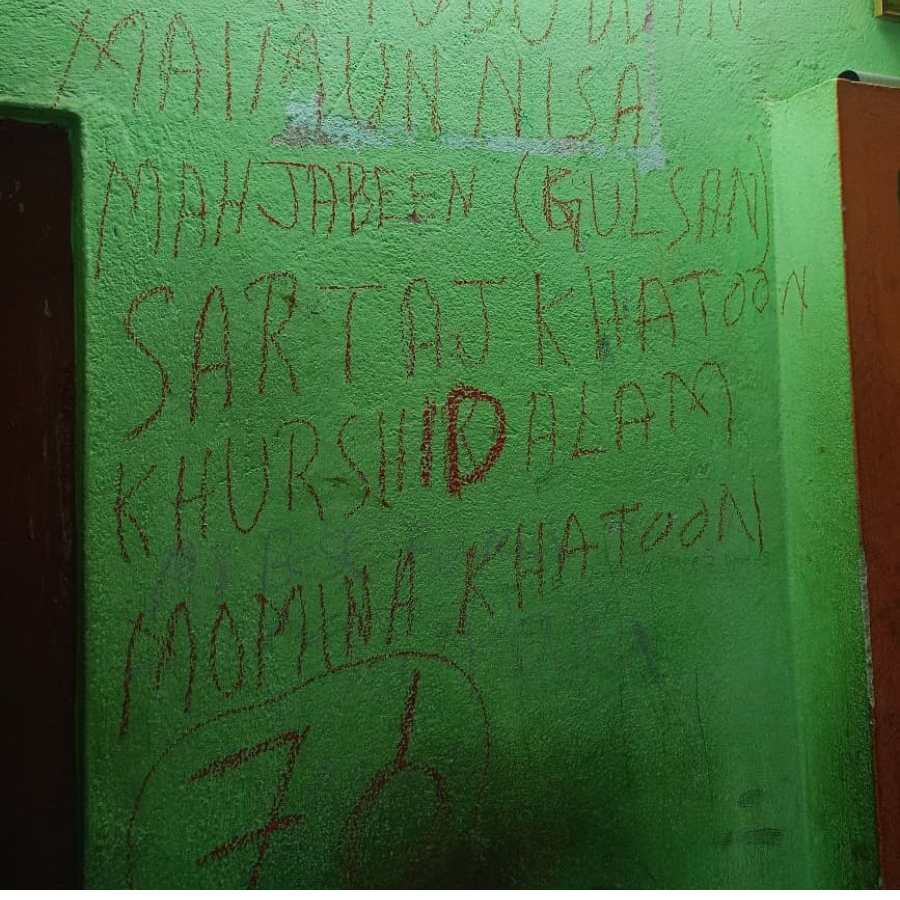 MAIMUN NISA
MAHJABEEN (GULSAN)
SARTAJ KHATOON
KHURSHID ALAM
MOMINA KHATOON
76